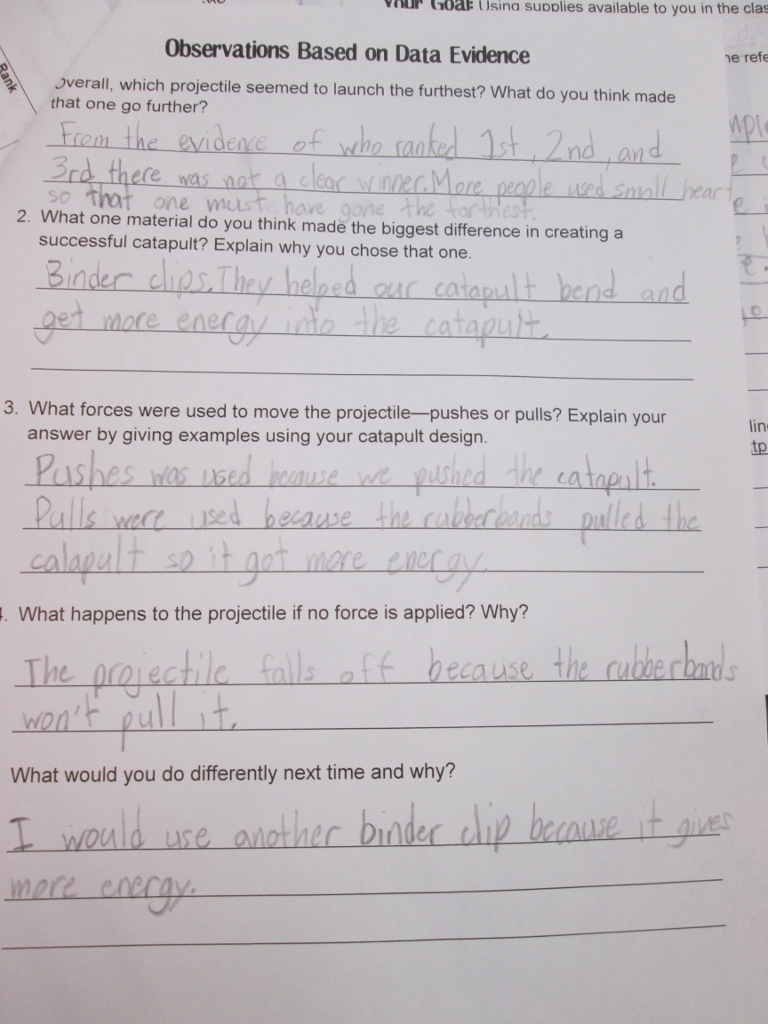 Your Goal: Using supplies available to you in the clas
Rank
Observations Based on Data Evidence
he refe
Overall, which projectile seemed to launch the furthest? What do you think made
that one go further?
From the evidence of who ranked 1st, 2nd, and
3rd there was not a clear winner. More people used small heart
so that one must have gone the farthest.
2. What one material do you think made the biggest difference in creating a
successful catapult? Explain why you chose that one.
Binder clips. They helped our catapult bend and
get more energy into the catapult.
3. What forces were used to move the projectile—pushes or pulls? Explain your
answer by giving examples using your catapult design.
Pushes was used because we pushed the catapult.
Pulls were used because the rubberbands pulled the
calapult so it got more energy.
. What happens to the projectile if no force is applied? Why?
The projectile falls off because the rubberbands
won't pull it.
What would you do differently next time and why?
I would use another binder clip because it gives
more energy.